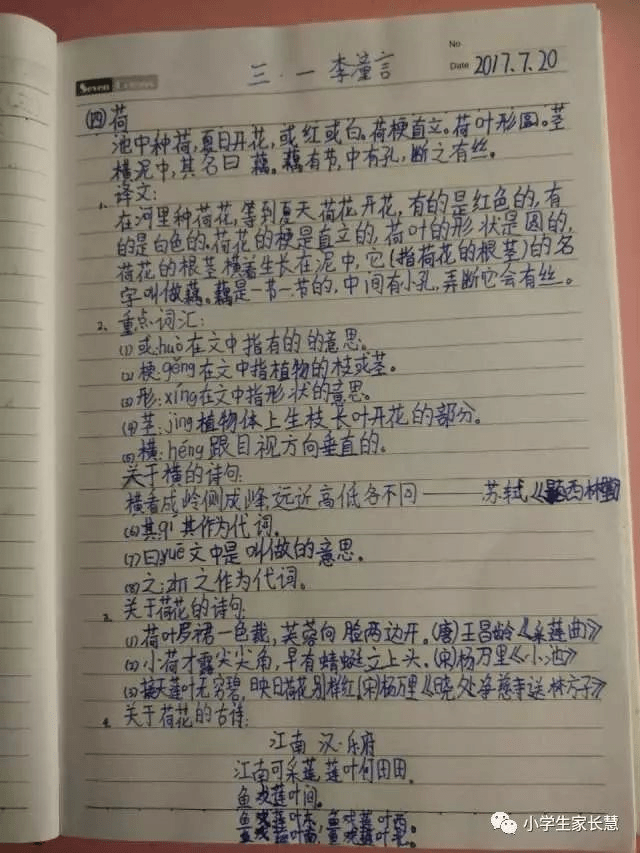 Seven
三·一 李潼言
No
Date 2017.7.20
(四)荷
池中种荷,夏日开花,或红或白。荷梗直立。荷叶形圆。茎
横泥中,其名曰 藕。藕有节,中有孔,断之有丝。
1. 译文:
在河里种荷花,等到夏天荷花开花,有的是红色的,有
的是白色的。荷花的梗是直立的,荷叶的形状是圆的,
荷花的根茎横着生长在泥中,它(指荷花的根茎)的名
字叫做藕。藕是一节一节的,中间有小孔,弄断它会有丝。
2、重点词汇:
(1)或:huò在文中指有的的意思。
(2)梗:gěng在文中指植物的枝或茎。
(3)形:xíng在文中指形状的意思。
(4)茎:jīng植物体上生枝长叶开花的部分。
(5)横:héng跟目视方向垂直的。
关于横的诗句:
横看成岭侧成峰,远近高低各不同——苏轼《题西林壁》
(6)其:qí其作为代词。
(7)曰:yuē文中是叫做的意思。
(8)之:zhī之作为代词。
3、关于荷花的诗句:
(1)荷叶罗裙一色裁,芙蓉向脸两边开。(唐)王昌龄《采莲曲》
(2)小荷才露尖尖角,早有蜻蜓立上头。(宋)杨万里《小池》
(3)接天莲叶无穷碧,映日荷花别样红(宋)杨万里《晓处净慈寺送林方子》
4、关于荷花的古诗:
江南 汉·乐府
江南可采莲莲叶何田田。
鱼戏莲叶间。
鱼戏莲叶东,鱼戏莲叶西。
鱼戏莲叶南,鱼戏莲叶北。
小学生家长慧